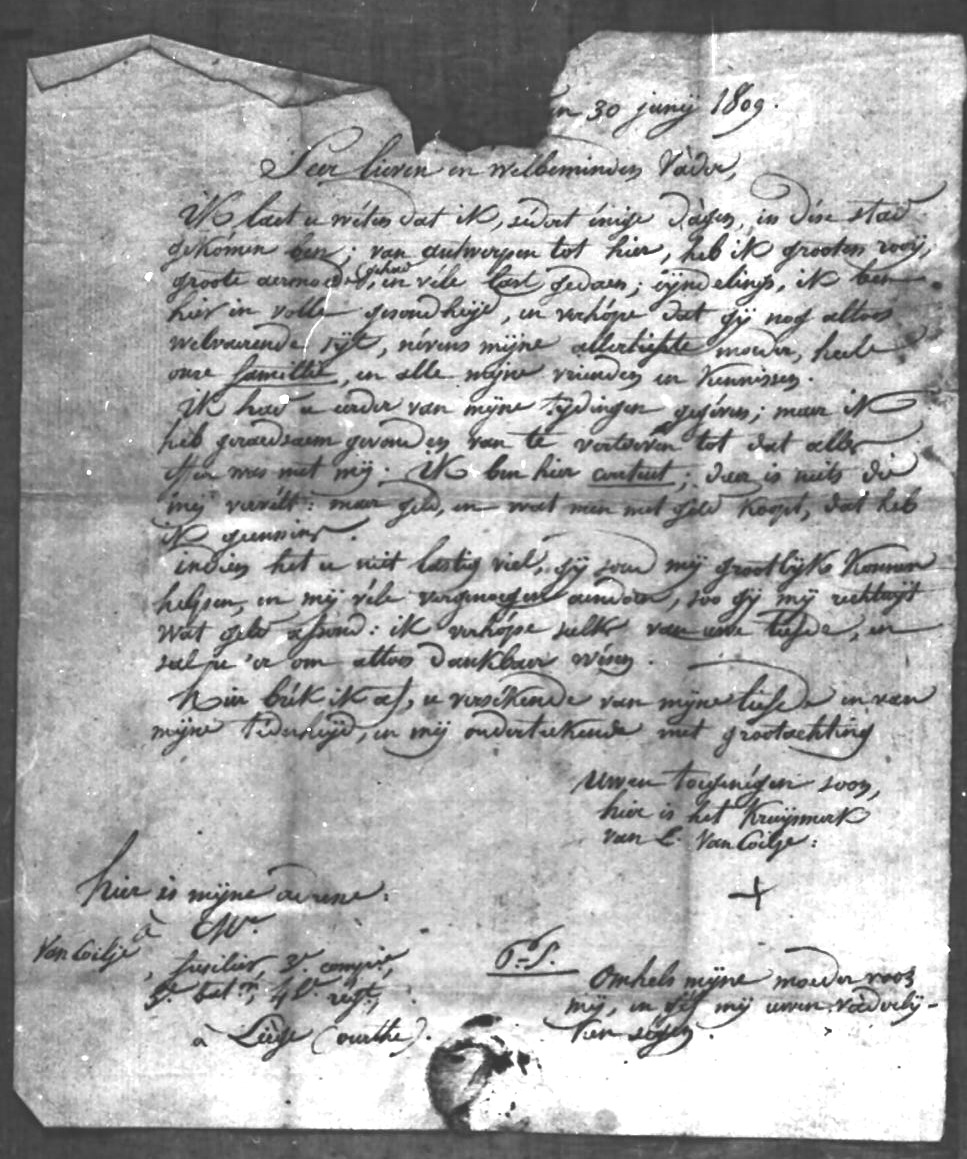 n 30 junij 1809.
Seer lieven en welbeminden Vàder,
IK laet u wéten dat iK, sedert énige dàgen, in dése stad
gekómen ben; van antwerpen tot hier, heb iK grooten rooij,
groote aermoede gehad, en véle last gedaen; eyndelings, iK ben
hier in volle gesondheyd, en verhópe dat gij nog altoos
welvaerende sijt, névens mijne allerliefste moeder, heele
onse famillie, en alle mijne vrienden en Kennissen.
IK had u eerder van mijne tijdingen gegéven; maer iK
heb geraedsaem gevonden van te vertoeven tot dat alles
effen was met mij. IK ben hier content; daer is niets die
mij vervélt: maer geld, en wat men met geld koopt, dat heb
iK
indien het u niet lastig viel, gij soud mij grootelijks Konnen
helpen, en mij véle vergenoegen aendoen, soo gij mij rechtuijt
wat geld afsond: ik verhópe sulks van uwe liefde, en
sal je 'er om altoos dankbaer wésen.
hier brék iK af, u versékerende van mijne liefde en van
mijne téderheijd, en mij onderteekende met grootachting
Uwen toegenégen soon,
hier is het Kruijsmerk
van L. Van Coilje:
+
hier is mijne adresse:
à
Van Coilje
, fusilier, 3e. compie,
5e. batn., 48e. regt.,
à Liège (ourthe).
P.S.
Omhels mijne moeder voor
mij, en géf mij uwen vàderlij-
ken ségen.